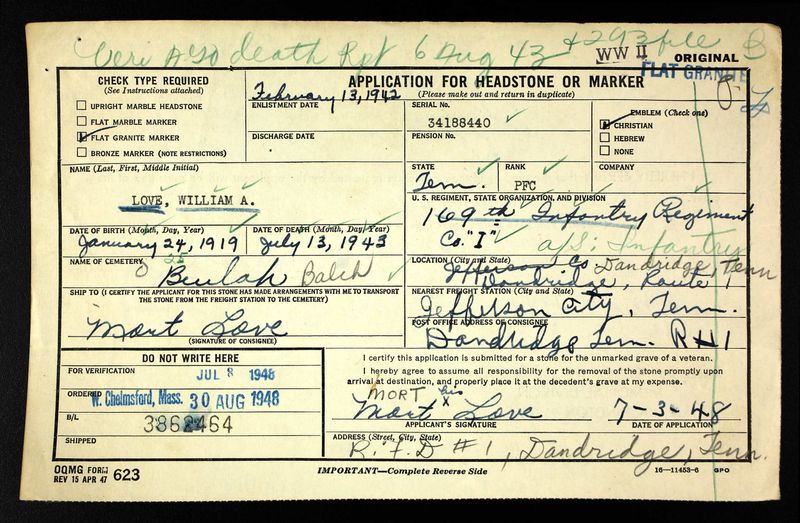 Veri AGO death Rpt 6 Aug 43 & 293 file B
WW II ORIGINAL
FLAT GRANITE
CHECK TYPE REQUIRED
(See Instructions attached)
UPRIGHT MARBLE HEADSTONE
FLAT MARBLE MARKER
FLAT GRANITE MARKER
BRONZE MARKER (NOTE RESTRICTIONS)
February 13, 1942
ENLISTMENT DATE
DISCHARGE DATE
APPLICATION FOR HEADSTONE OR MARKER
(Please make out and return in duplicate)
SERIAL No.
34188440
PENSION No.
EMBLEM (Check one)
CHRISTIAN
HEBREW
NONE
NAME (Last, First, Middle Initial)
LOVE, WILLIAM A.
STATE
Tenn.
RANK
PFC
COMPANY
U. S. REGIMENT, STATE ORGANIZATION, AND DIVISION
169th Infantry Regiment
Co. "I"
A/S: Infantry
DATE OF BIRTH (Month, Day, Year)
January 24, 1919
DATE OF DEATH (Month, Day, Year)
July 13, 1943
NAME OF CEMETERY
Beulah Balch
LOCATION (City and State)
Jefferson Co Dandridge, Tenn
Dandridge, Route 1
SHIP TO (I CERTIFY THE APPLICANT FOR THIS STONE HAS MADE ARRANGEMENTS WITH ME TO TRANSPORT
THE STONE FROM THE FREIGHT STATION TO THE CEMETERY)
Mort Love
(SIGNATURE OF CONSIGNEE)
NEAREST FREIGHT STATION (City and State)
Jefferson City, Tenn.
POST OFFICE ADDRESS OF CONSIGNEE
Dandridge Tenn. R#1
DO NOT WRITE HERE
FOR VERIFICATION
JUL 8 1948
ORDERED
W. Chelmsford, Mass. 30 AUG 1948
B/L
3862464
SHIPPED
I certify this application is submitted for a stone for the unmarked grave of a veteran.
I hereby agree to assume all responsibility for the removal of the stone promptly upon
arrival at destination, and properly place it at the decedent's grave at my expense.
MORT his
Mort x Love 7-3-48
APPLICANT'S SIGNATURE DATE OF APPLICATION
ADDRESS (Street, City, State)
R. F. D #1, Dandridge, Tenn.
OQMG FORM 623
REV 15 APR 47
IMPORTANT—Complete Reverse Side
16—11453-6 GPO